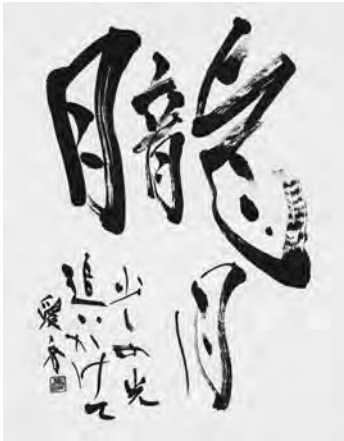 朧
月
少しの光
追いかけて
愛